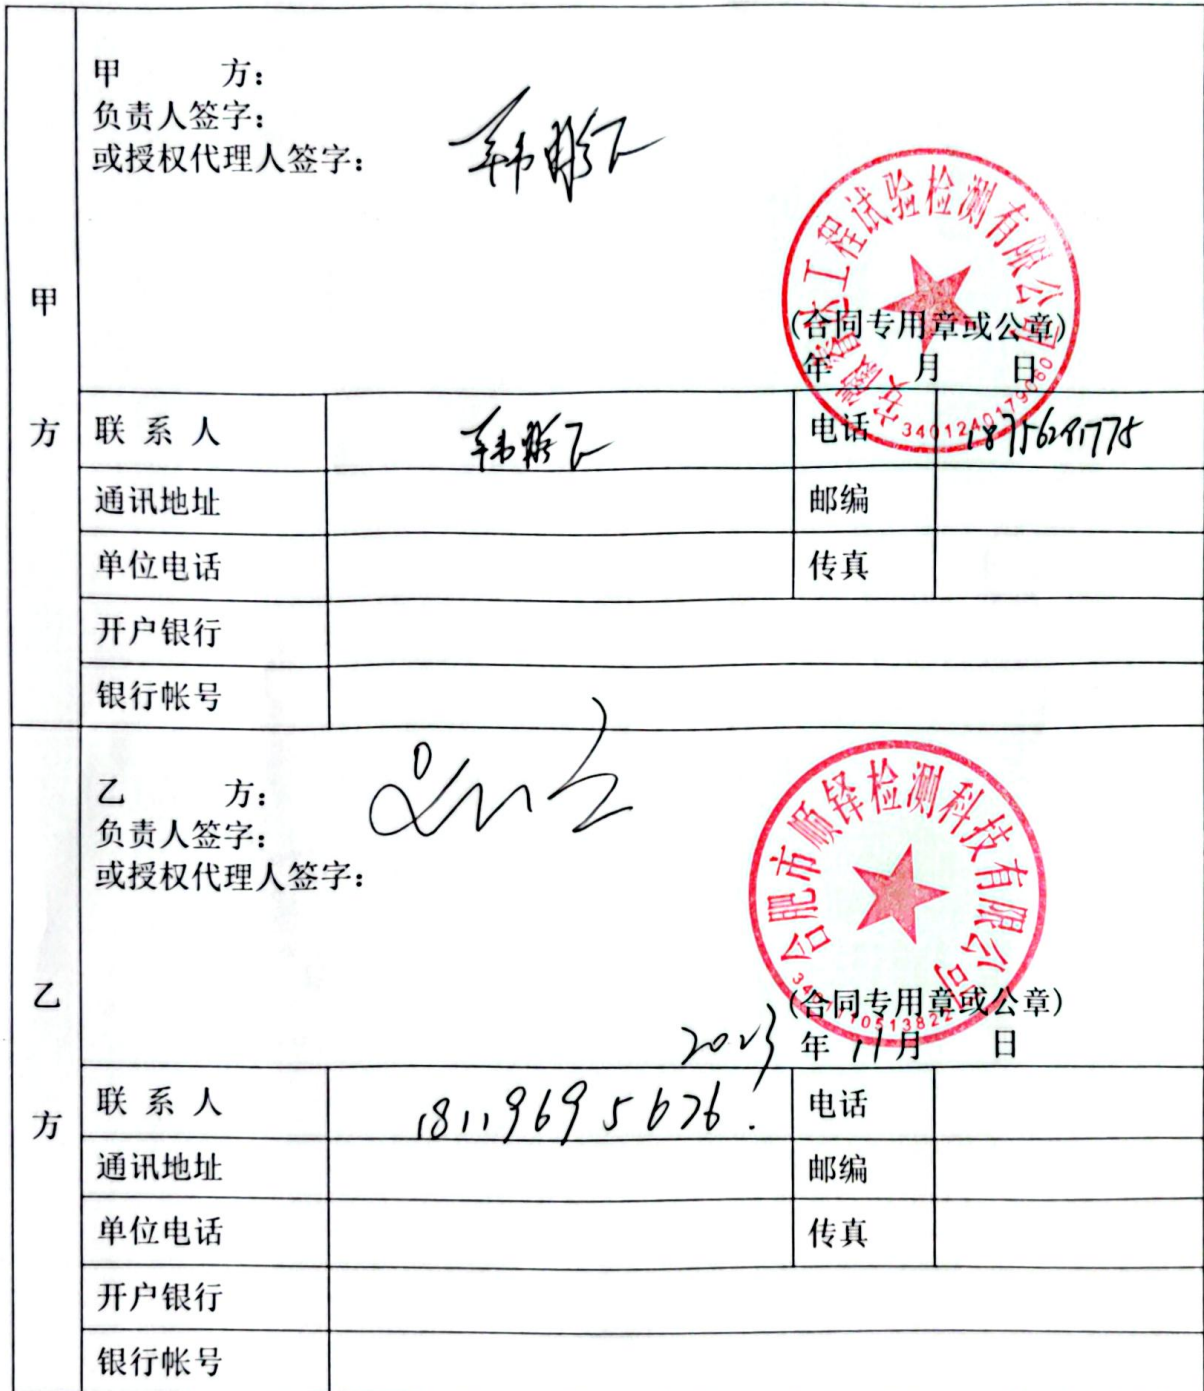 甲 方:
负责人签字:
或授权代理人签字:
韩鹏飞
安徽省 工程试验检测有限公司
(合同专用章或公章)
年 月 日
3401240179060
甲方
联系人 韩鹏飞 电话
通讯地址 邮编
单位电话 传真
开户银行
银行帐号
乙 方:
负责人签字:
或授权代理人签字:
合肥市顺铎检测科技有限公司
(合同专用章或公章)
2023年11月 日
乙方
联系人 18119695676. 电话
通讯地址 邮编
单位电话 传真
开户银行
银行帐号